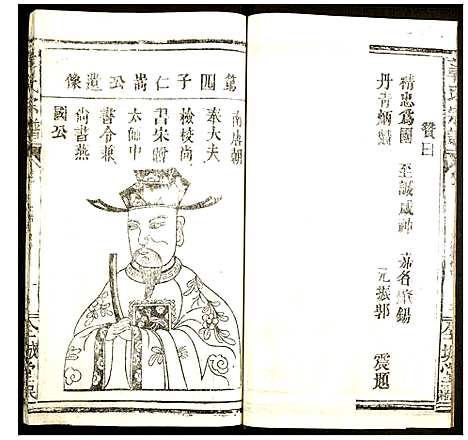 贊曰
精忠為國 至誠感神 嘉名 錫
丹青炳 元振郭 震題
篤四子仁嵩公遺像
南唐朝
奉大夫
檢校尚
書宋贈
太師中
書令兼
尚書燕
國公